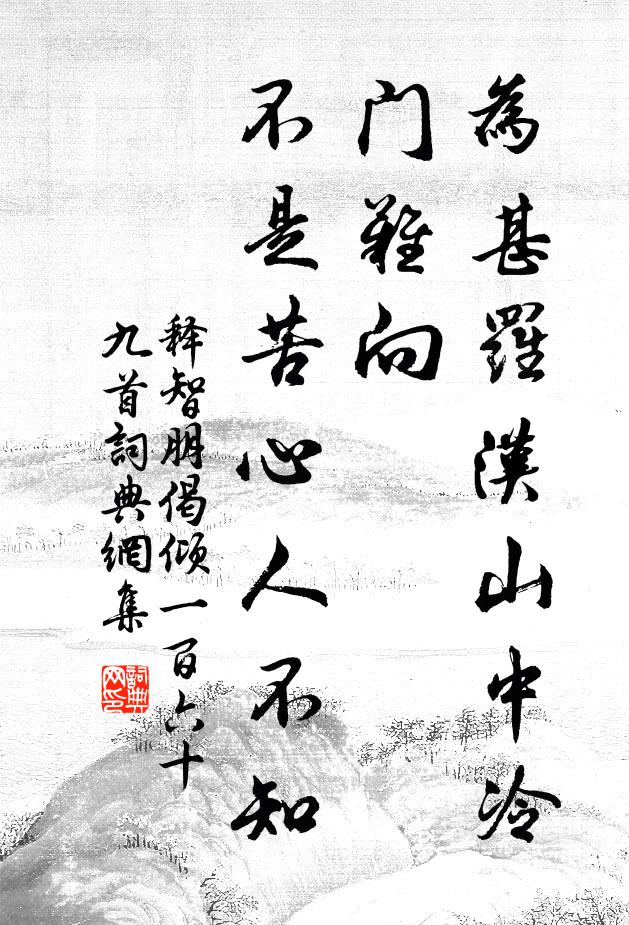 為甚羅漢山中冷
門難向
不是苦心人不知
释智朋偈倾一百六十
九首詞典網集
詞典
网印